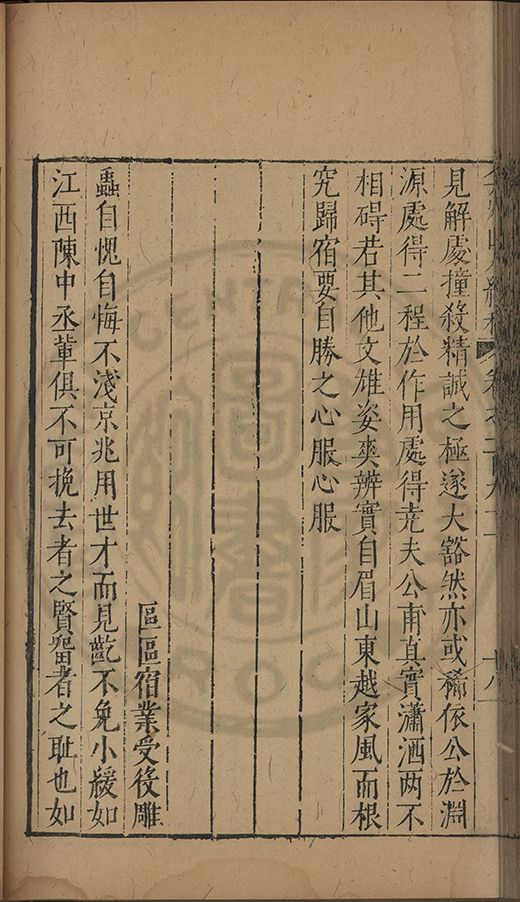 見解處撞殺精誠之極遂大豁然亦或稀依公於淵
源處得二程於作用處得堯夫公甫真實瀟洒两不
相碍若其他文雄姿爽辨實自眉山東越家風而根
究歸宿要自勝之心服心服
區區宿業受後雕
蟲自愧自悔不淺京兆用世才而見齕不免小緩如
江西陳中丞輩俱不可挽去者之賢畱者之耻也如